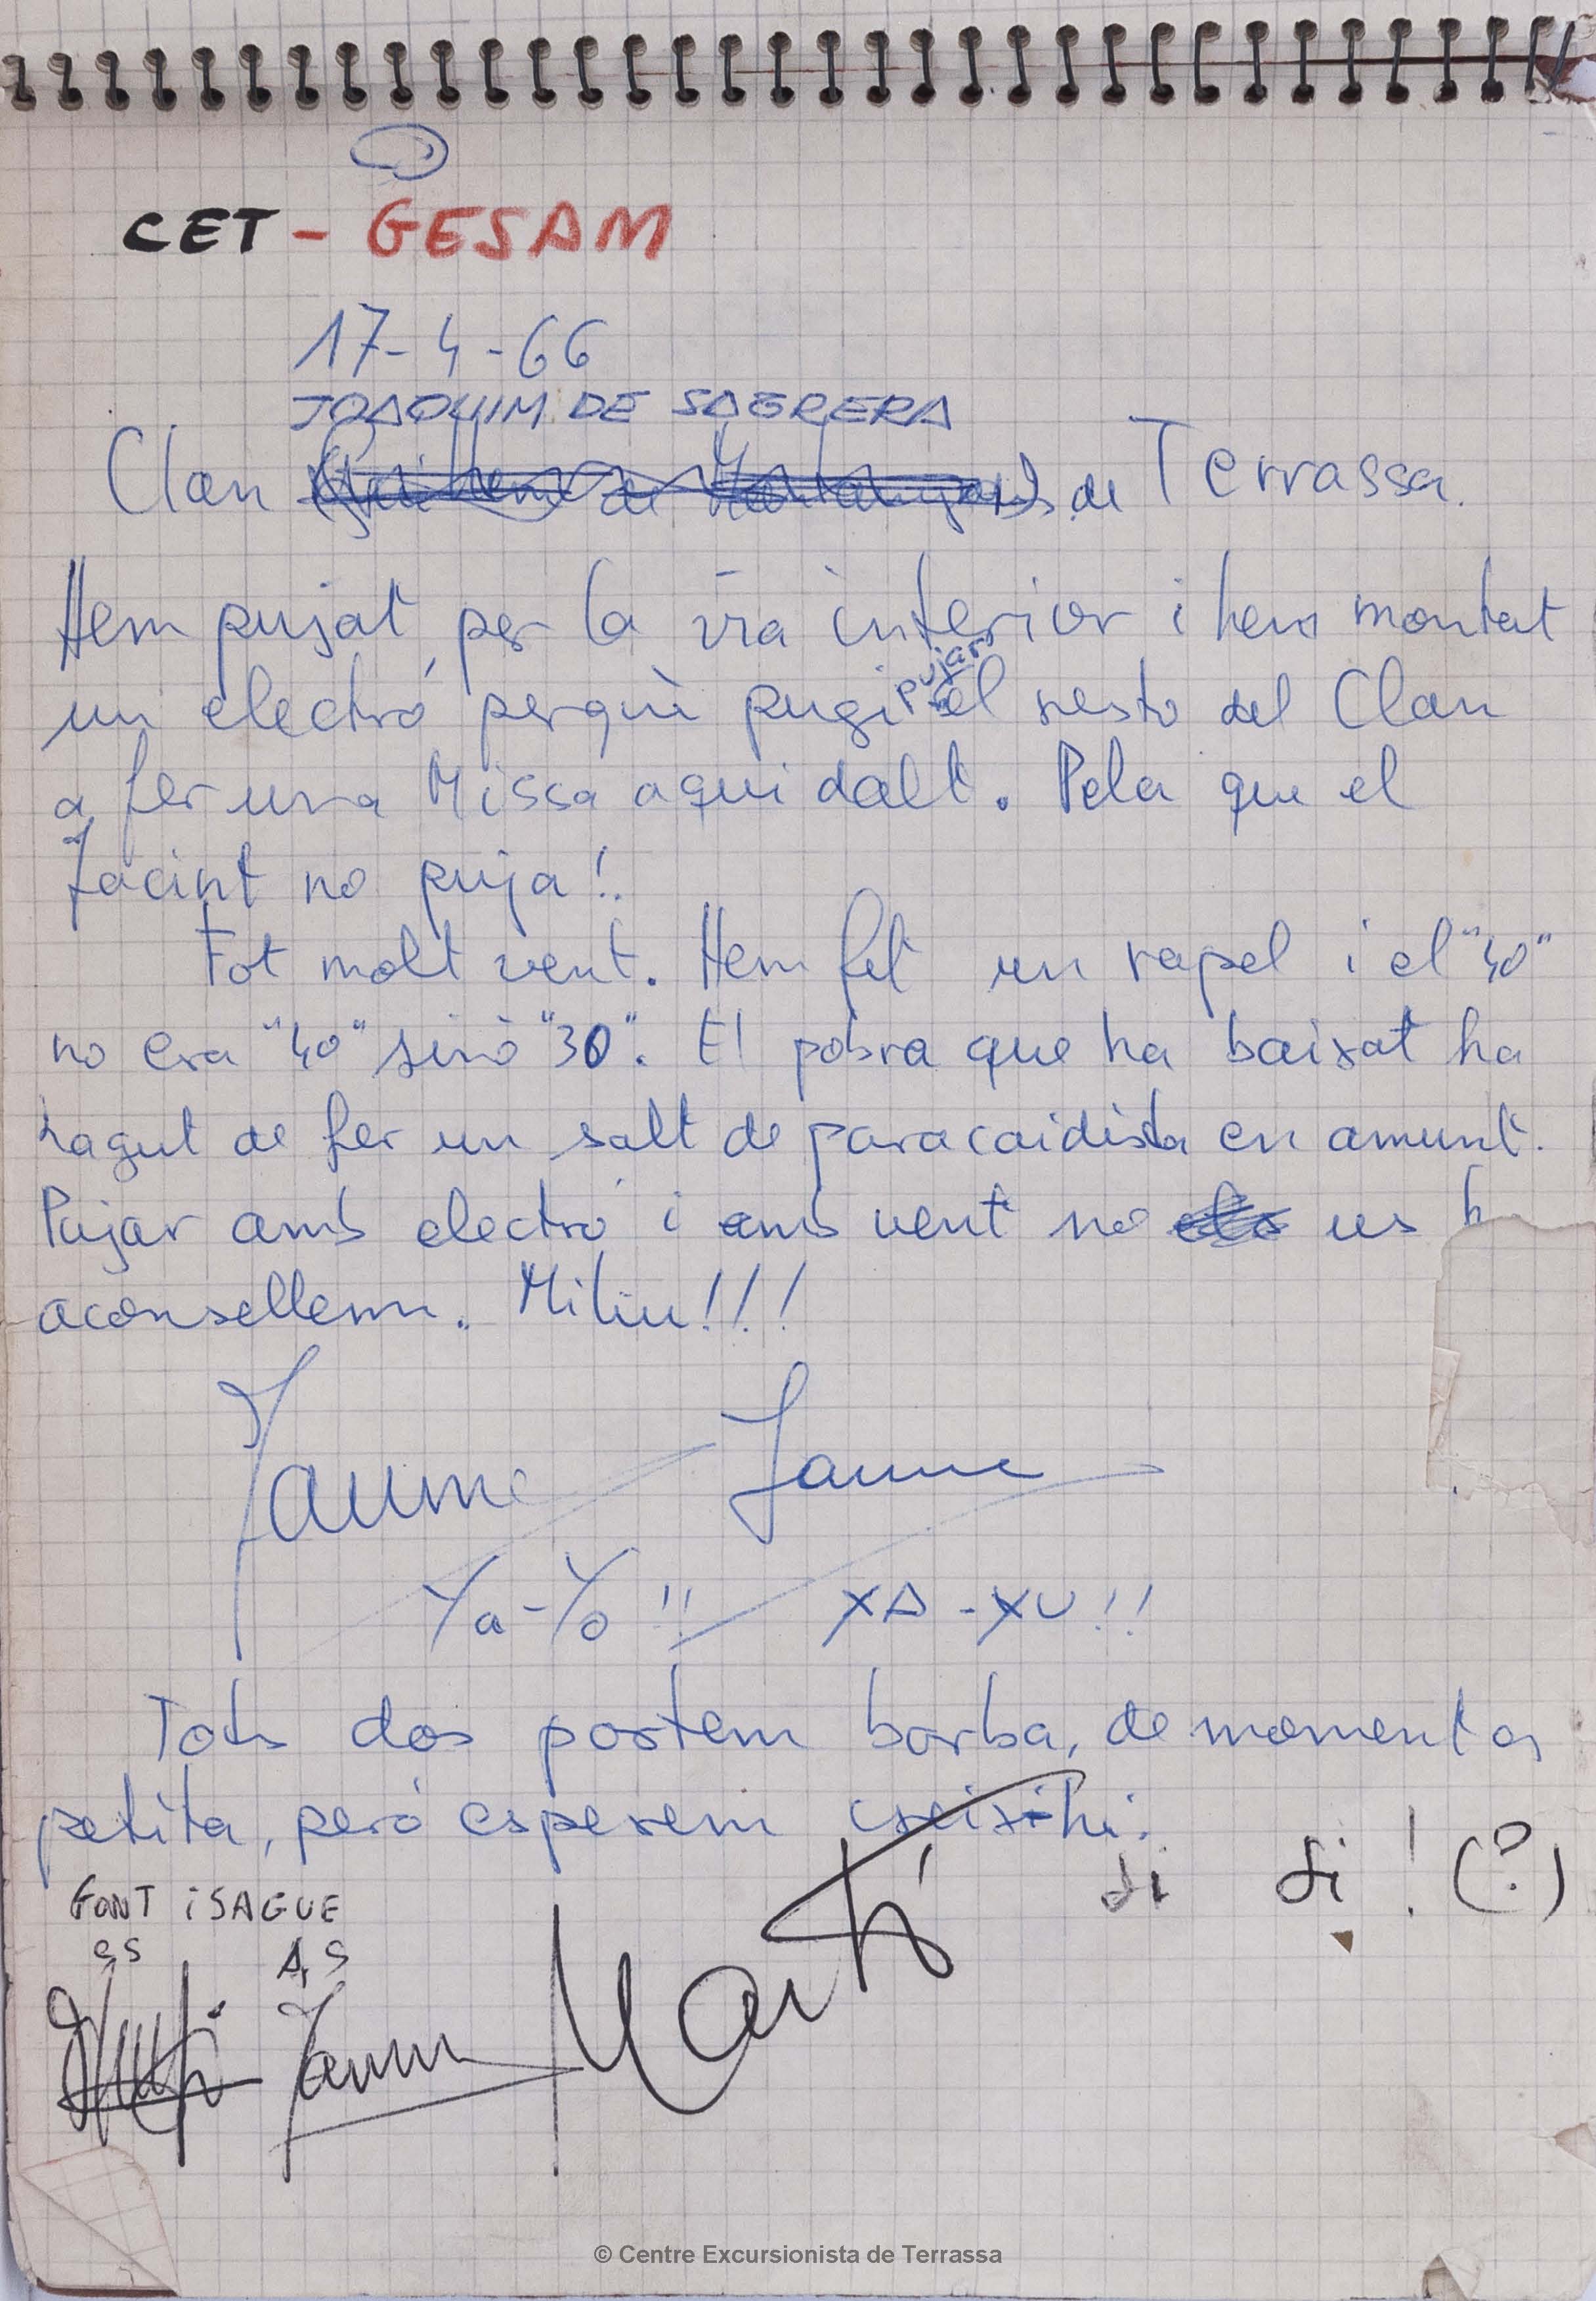 CET - GESAM
17-4-66
JOAQUIM DE SAGRERA
Clan de Terrassa.
Hem pujat per la via interior i hem montat
un electró perquè pugi pujar el resto del Clan
a fer una Missa aqui dalt. Pela que el
Jacint no puja!.
Fot molt vent. Hem fet un rapel i el "40"
no era "40" sinò "30". El pobra que ha baixat ha
hagut de fer un salt de paracaidista en amunt.
Pujar amb electró i amb vent no us h
aconsellem. Miliu!!!
Jaume Jaume
Ya-Yo!! XA-XU!!
Tots dos portem barba, de moment es
petita, però esperem
si si! (?)
FONT i SAGUE
es AS
Jaume Martí
© Centre Excursionista de Terrassa